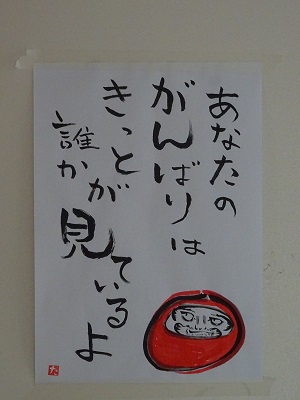 あなたの
がんばりは
きっと
誰かが
見ているよ
た